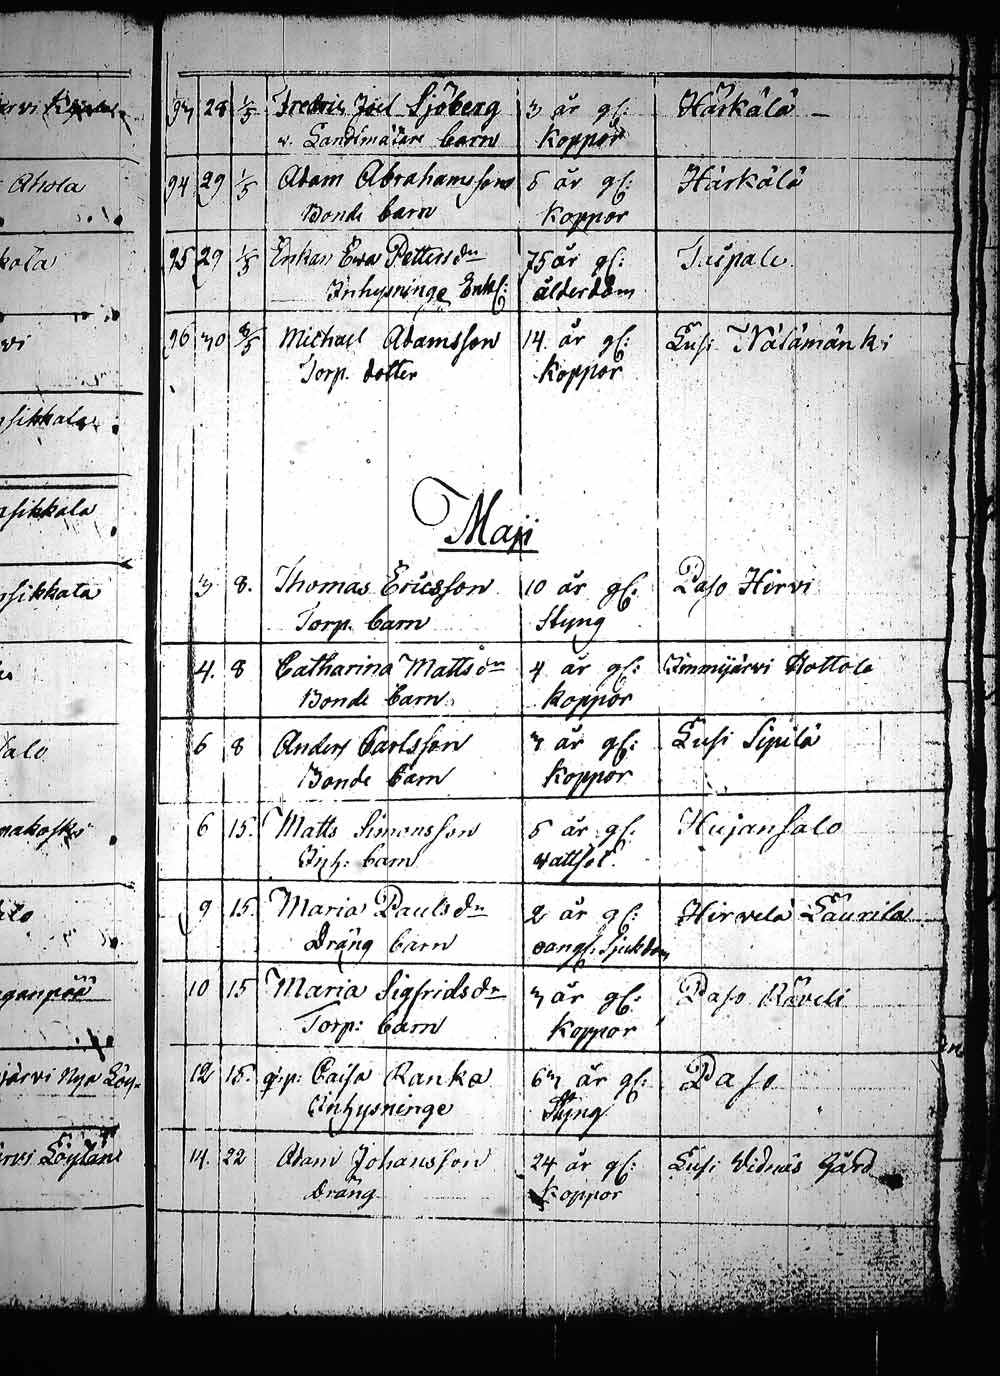 Ahola
kala
vi
sikkala
sikkala
sikkala
salo
makoski
järvi Nya
järvi Löytäne
93 28 1/5 Fredric Joel Sjöberg 3 år gl: Härkälä
v. Landtmätare barn koppor
94 29 1/5 Adam Abrahamsson 6 år gl: Härkälä
Bonde barn koppor
95 29 1/5 Enkan Ewa Pettersdr 75 år gl: Taipale
Inhysninge Enkl: ålderdom
96 30 8/5 Michael Adamsson 14 år gl: Lusi Nälämänki
Torp. dotter koppor
Maji
3 8. Thomas Ericsson 10 år gl: Paso Hirvi
Torp. barn Styng
4. 8 Catharina Mattsdr 4 år gl: Immijärvi Hottola
Bonde barn koppor
6 8 Anders Carlsson 3 år gl: Lusi Sipilä
Bonde barn koppor
6 15. Matts Simonsson 6 år gl: Hujansalo
Inh: barn wattsot
9 15. Maria Paulsdr 2 år gl: Hirvelä Laurila
Dräng barn oangf: Sjukdom
10 15 Maria Sigfridsdr 3 år gl: Paso Räveli
Torp: barn koppor
12 15. qv:p: Caisa Ranka 63 år gl: Paso
Inhysninge Styng
14. 22 Adam Johansson 24 år gl: Lusi Widnäs Gård
Dräng koppor